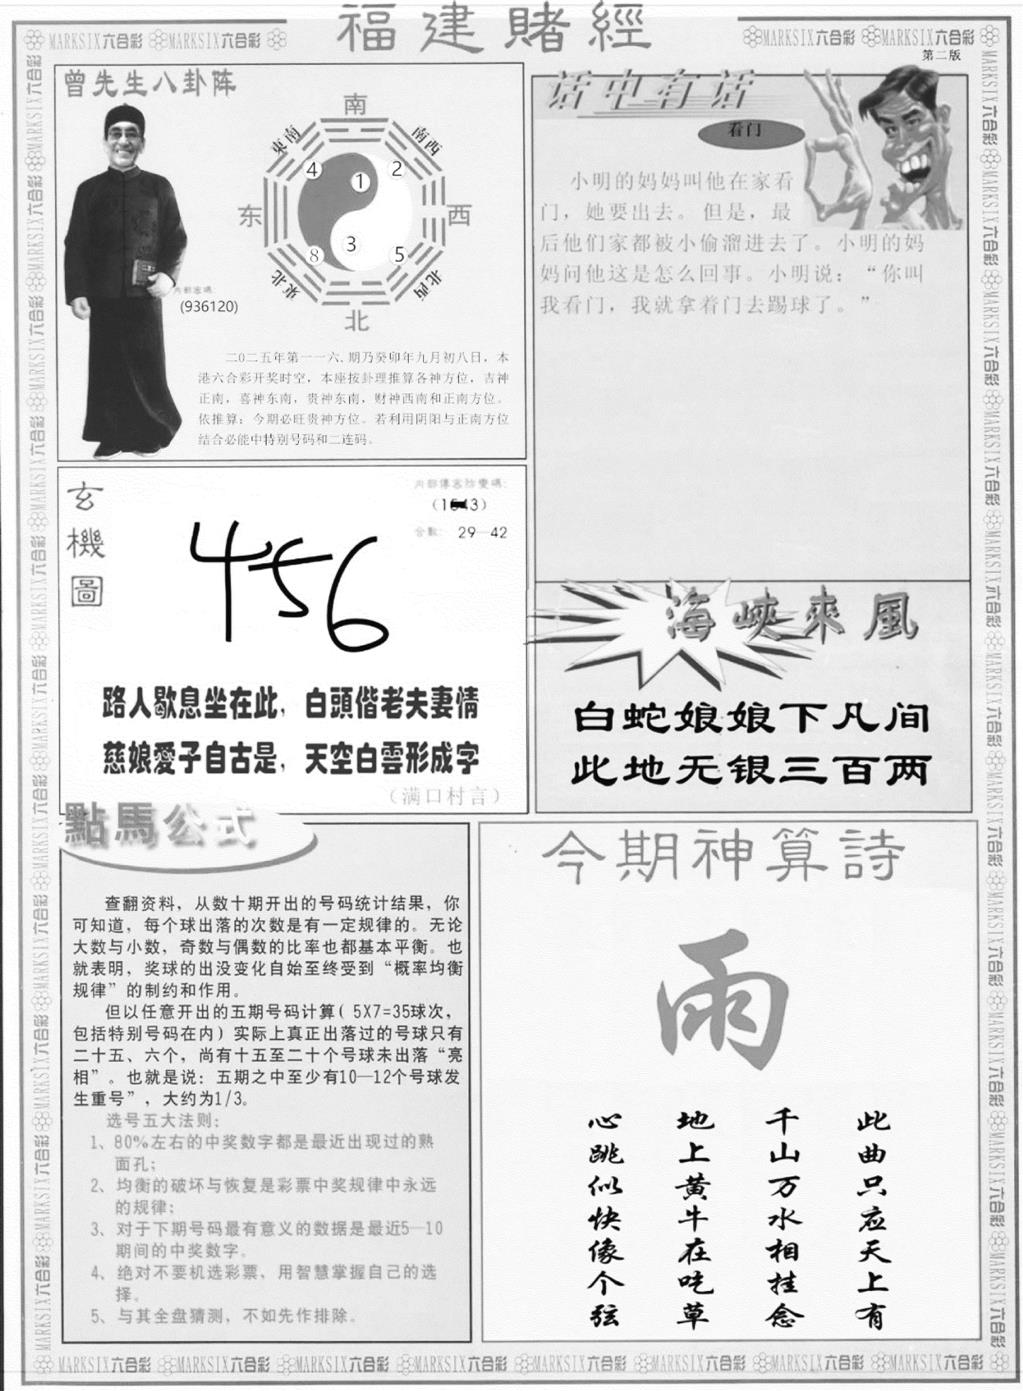 福建賭經
MARKSIX六合彩 MARKSIX六合彩
MARKSIX六合彩 MARKSIX六合彩
第二版
曾先生八卦阵
南
東南
南西
4
1
2
东
西
8
3
5
東北
北西
北
内部密碼:
(936120)
二0二五年第一一六、期乃癸卯年九月初八日，本
港六合彩开奖时空，本座按卦理推算各神方位，吉神
正南，喜神东南，贵神东南，财神西南和正南方位。
依推算：今期必旺贵神方位。若利用阴阳与正南方位
结合必能中特别号码和二连码。
话中有话
看门
小明的妈妈叫他在家看
门，她要出去。但是，最
后他们家都被小偷溜进去了。小明的妈
妈问他这是怎么回事。小明说：“你叫
我看门，我就拿着门去踢球了。”
玄機圖
内部傳密防變碼:
合數: 29—42
456
路人歇息坐在此，白頭偕老夫妻情
慈娘愛子自古是，天空白雲形成字
（满口村言）
海峽來風
白蛇娘娘下凡间
此地无银三百两
點馬公式
查翻资料，从数十期开出的号码统计结果，你
可知道，每个球出落的次数是有一定规律的。无论
大数与小数，奇数与偶数的比率也都基本平衡。也
就表明，奖球的出没变化自始至终受到“概率均衡
规律”的制约和作用。
但以任意开出的五期号码计算( 5X7=35球次，
包括特别号码在内) 实际上真正出落过的号球只有
二十五、六个，尚有十五至二十个号球未出落“亮
相”。也就是说：五期之中至少有10—12个号球发
生重号”，大约为1/3。
选号五大法则：
1、80%左右的中奖数字都是最近出现过的熟
面孔；
2、均衡的破坏与恢复是彩票中奖规律中永远
的规律；
3、对于下期号码最有意义的数据是最近5—10
期间的中奖数字。
4、绝对不要机选彩票，用智慧掌握自己的选
择。
5、与其全盘猜测，不如先作排除。
今期神算詩
雨
此曲只应天上有
千山万水相挂念
地上黄牛在吃草
心跳似快像个弦
MARKSIX六合彩 MARKSIX六合彩 MARKSIX六合彩 MARKSIX六合彩 MARKSIX六合彩 MARKSIX六合彩 MARKSIX六合彩 MARKSIX六合彩